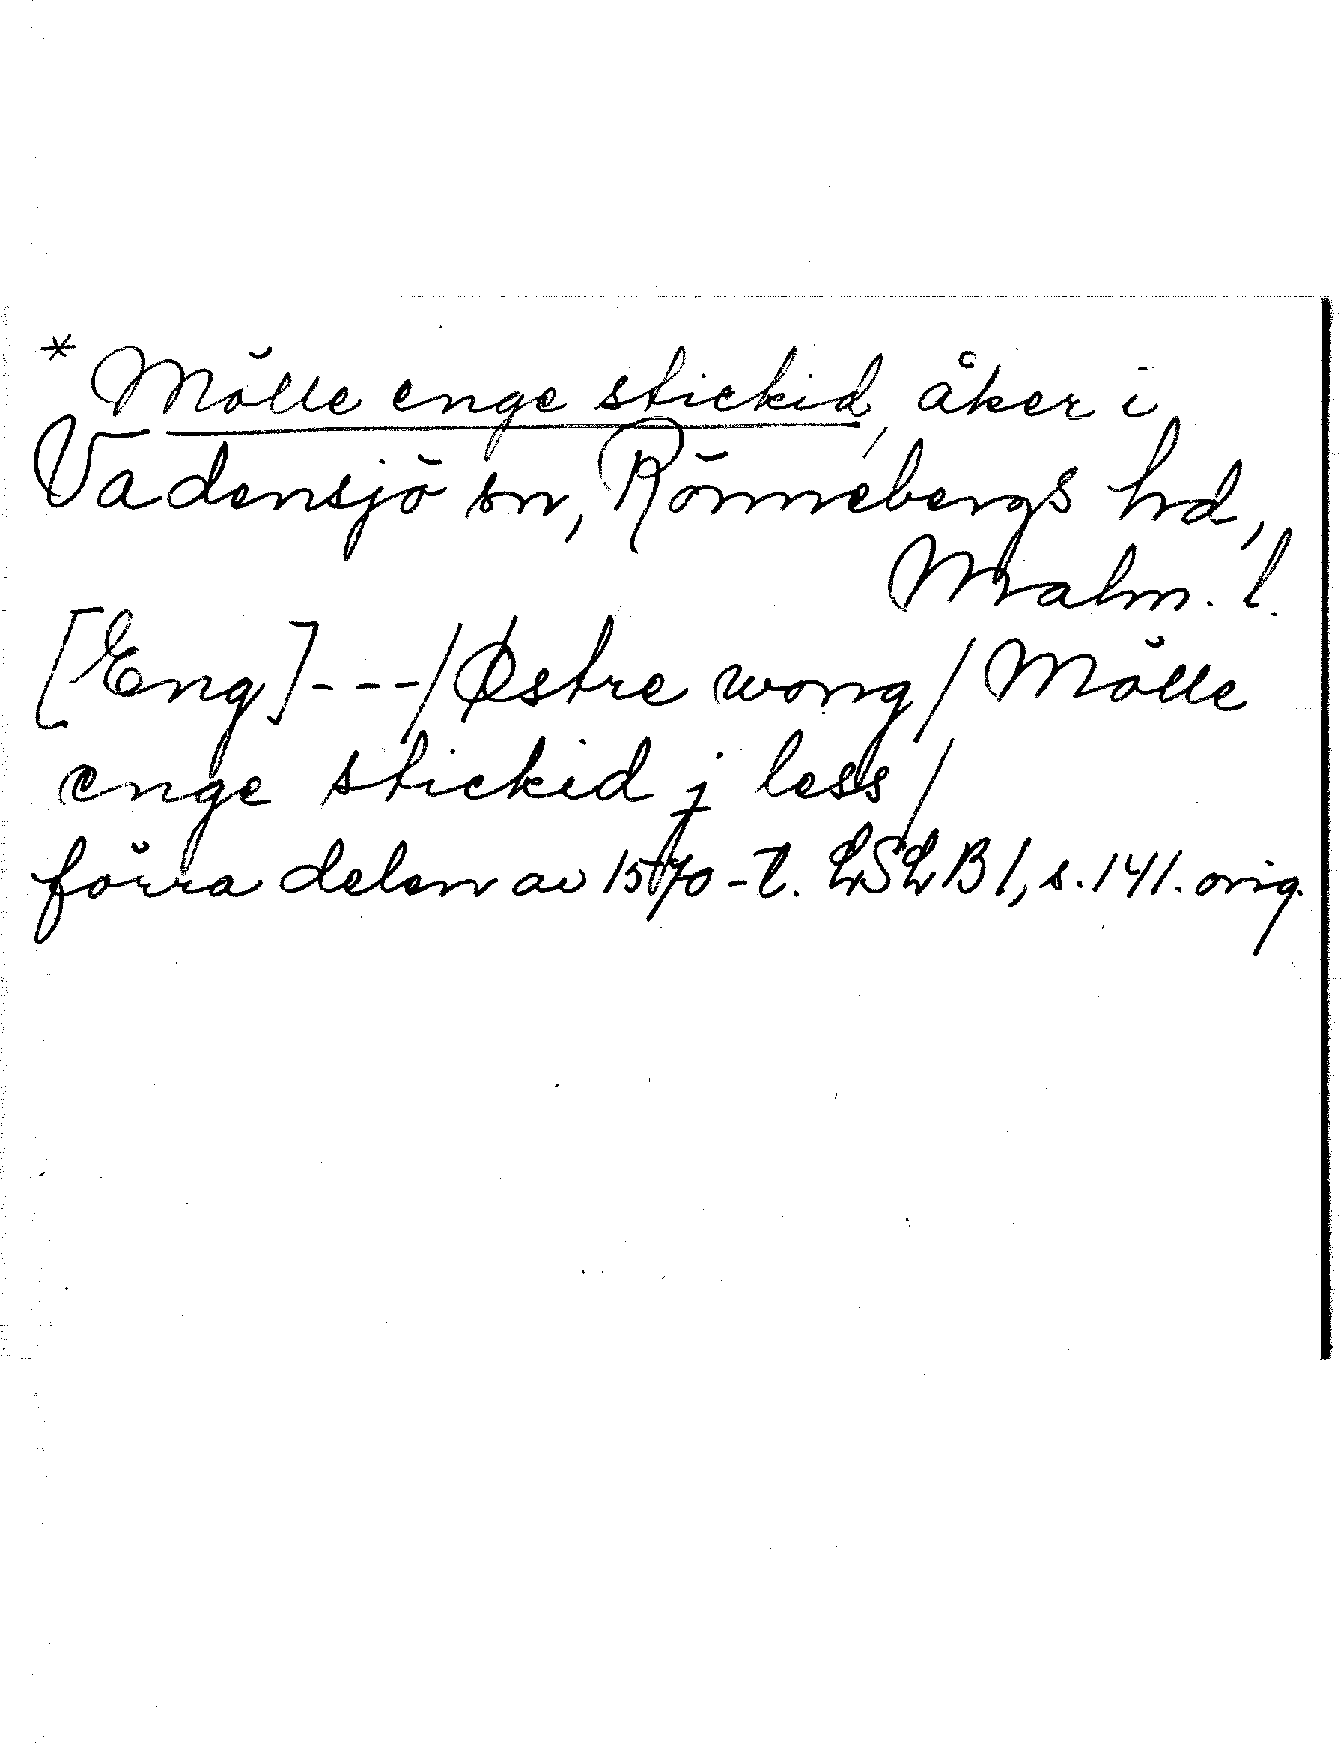 * Mölle enge stickid, åker i
Vadensjö sn, Rönnebergs hd,
Malm. l.
[Eng] --- / Østre wong / Mölle
enge stickid j less /
förra delen av 1570-t. LSLB 1, s. 141. orig.